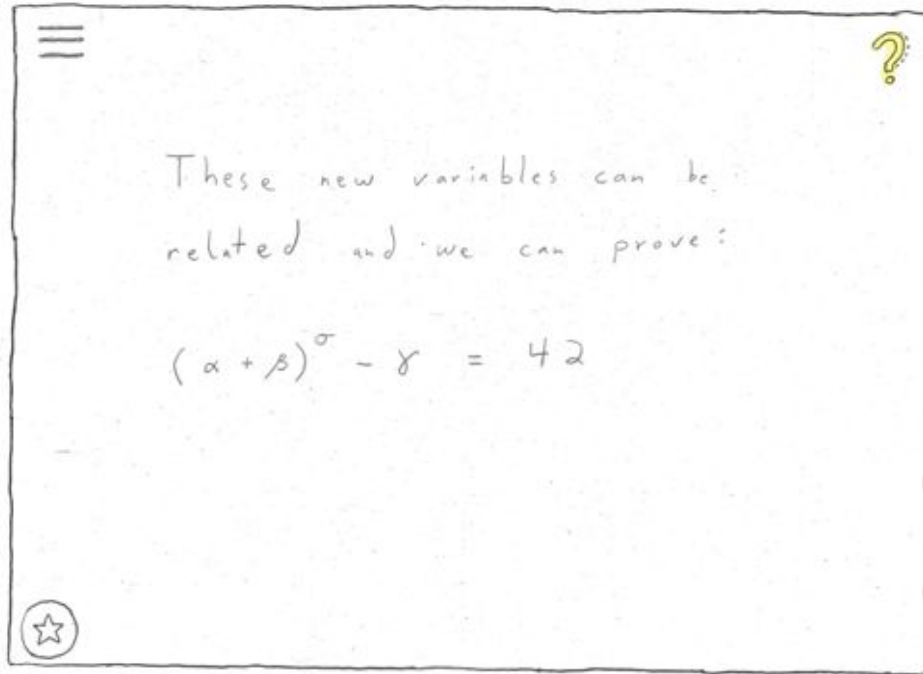 ?
These new variables can be
related and we can prove:
(α + β)^σ - γ = 42